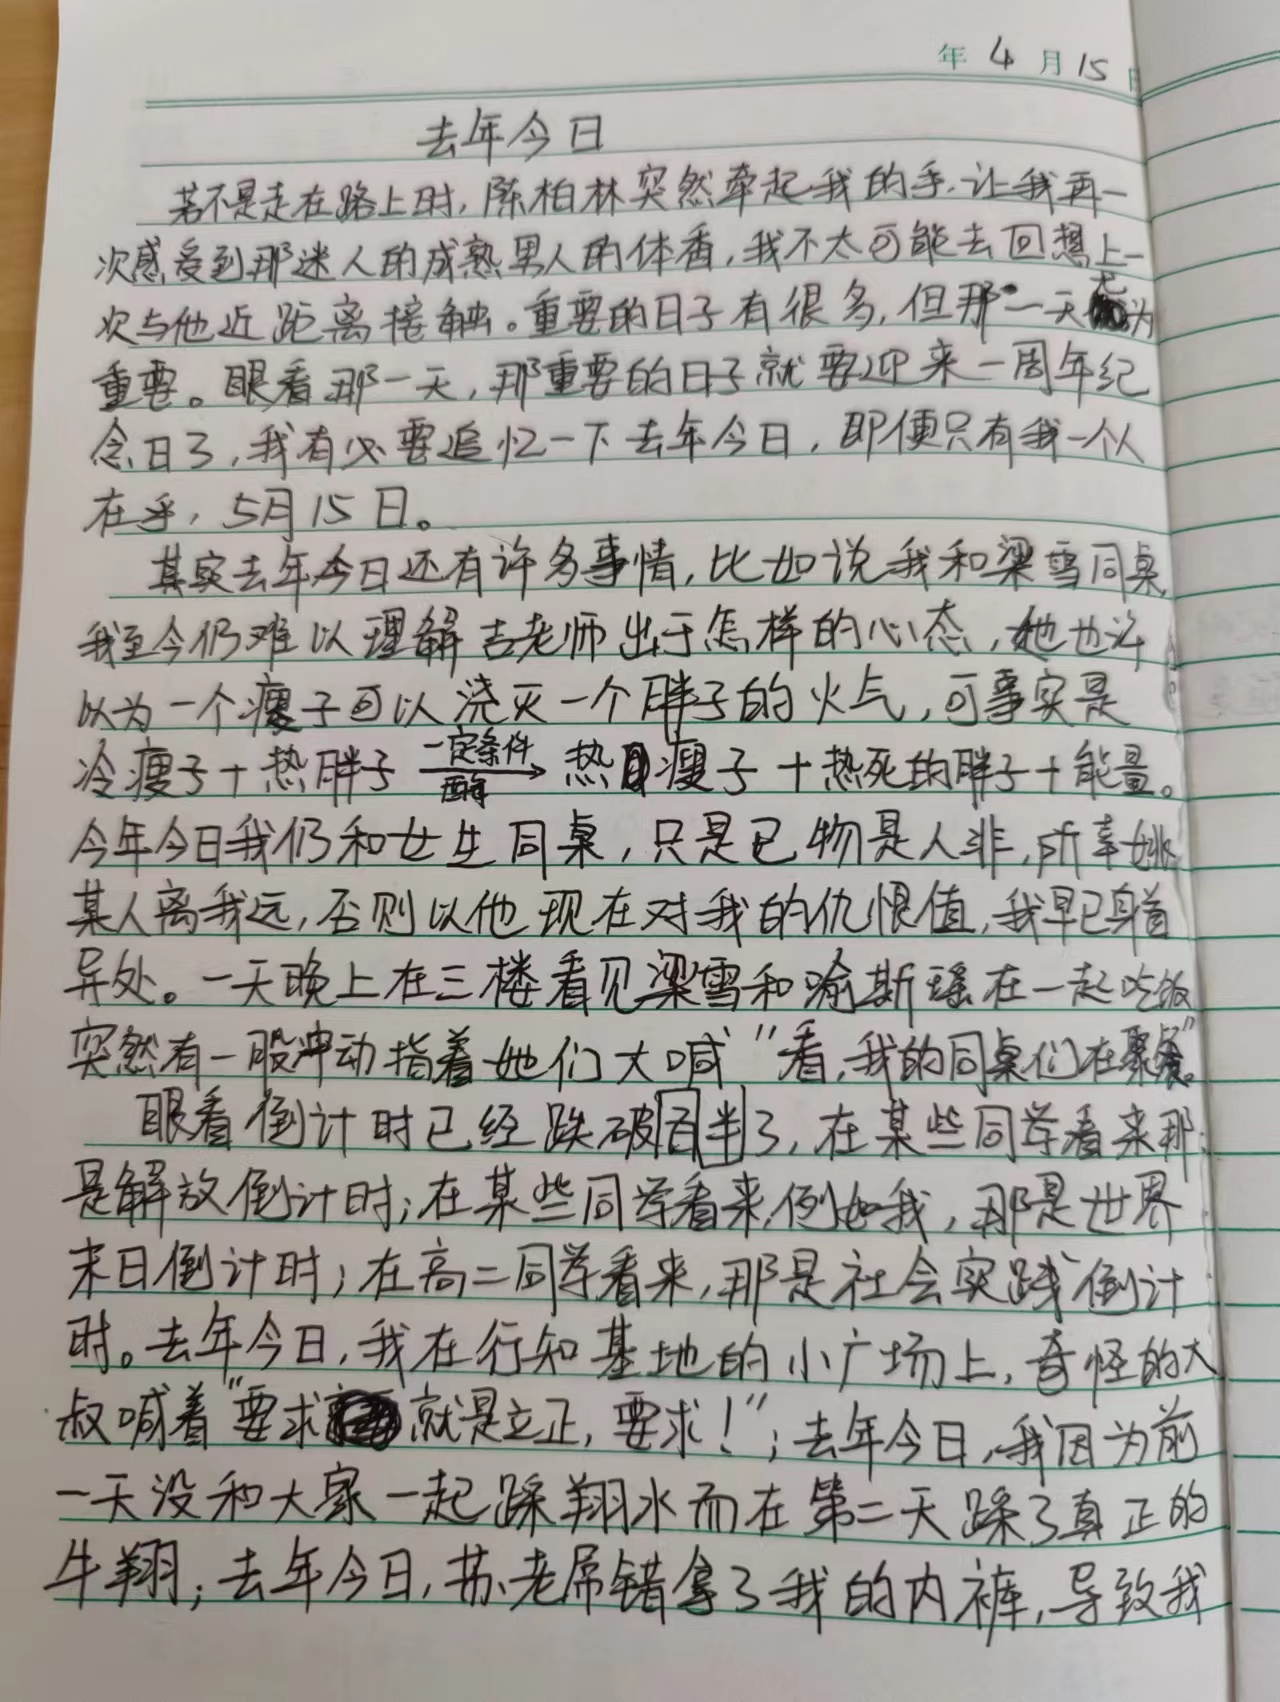 年 4 月 15 日
去年今日
若不是走在路上时,陈柏林突然牵起我的手,让我再一
次感受到那迷人的成熟男人的体香,我不太可能去回想上一
次与他近距离接触。重要的日子有很多,但那一天尤为
重要。眼看那一天,那重要的日子就要迎来一周年纪
念日了,我有必要追忆一下去年今日,即便只有我一个人
在乎,5月15日。
其实去年今日还有许多事情,比如说我和梁雪同桌,
我至今仍难以理解吉老师出于怎样的心态,她也许
以为一个瘦子可以浇灭一个胖子的火气,可事实是
冷瘦子+热胖子 一定条件 酶 → 热瘦子+热死的胖子+能量。
今年今日我仍和女生同桌,只是已物是人非,所幸姚
某人离我远,否则以他现在对我的仇恨值,我早已身首
异处。一天晚上在三楼看见梁雪和喻斯瑶在一起吃饭
突然有一股冲动指着她们大喊"看,我的同桌们在聚餐"。
眼看倒计时已经跌破百半了,在某些同学看来那
是解放倒计时;在某些同学看来,例如我,那是世界
末日倒计时;在高二同学看来,那是社会实践倒计
时。去年今日,我在行知基地的小广场上,奇怪的大
叔喊着"要求就是立正,要求!";去年今日,我因为前
一天没和大家一起踩翔水而在第二天踩了真正的
牛翔;去年今日,苏老屌错拿了我的内裤,导致我